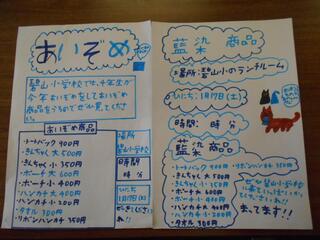 あいぞめ
碧山小学校では、六年生が
今年あいぞめをしておいぞめ
商品をうるのでぜひ見てください。
あいぞめ商品
・トートバック 900円
・きんちゃく大 500円
・きんちゃく小 350円
・ポーチ大 600円
・ポーチ小 400円
・ハンカチ大 400円
・ハンカチ小 200円
・タオル 300円
・リボンハンカチ 350円
場所
碧山小学校
時間
時 分
ひにち
1月17日(土)
藍染 商品
場所:碧山小のランチルーム
ひにち:1月17日(土)
時間: 時 分
藍染 商品
・トートバック 900円
・リボンハンカチ 350円
・きんちゃく大 500円
・きんちゃく小 350円
・ポーチ大 600円
・ポーチ小 400円
・ハンカチ大 400円
・ハンカチ小 200円
・タオル 300円
ぜひ碧山小学校
まってます!!